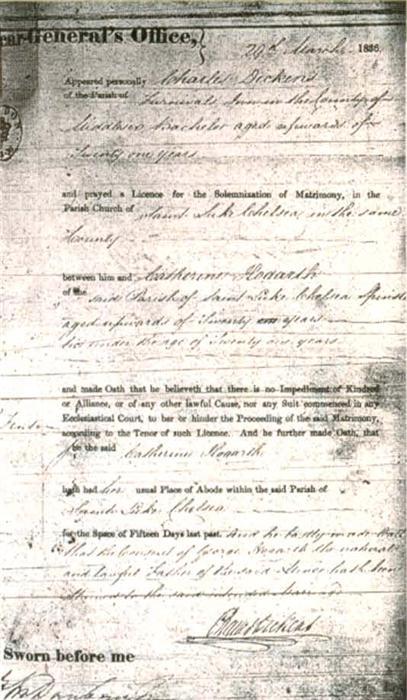 ear-General's Office,
29th March 1836.
Appeared personally Charles Dickens
of the Parish of Furnivals Inn in the County of
Middlesex Bachelor aged upwards of
Twenty one years
and prayed a Licence for the Solemnization of Matrimony, in the
Parish Church of Saint Luke Chelsea in the same
County
between him and Catherine Hogarth
of the said Parish of Saint Luke Chelsea Spinster
aged upwards of Twenty one years
but under the age of Twenty one years
and made Oath that he believeth that there is no Impediment of Kindred
or Alliance, or of any other lawful Cause, nor any Suit commenced in any
Ecclesiastical Court, to bar or hinder the Proceeding of the said Matrimony,
according to the Tenor of such Licence. And he further made Oath, that
the said Catherine Hogarth
hath had her usual Place of Abode within the said Parish of
Saint Luke Chelsea
for the Space of Fifteen Days last past. And he lastly made Oath
that the Consent of George Hogarth the natural
and lawful Father of the said Minor hath been
obtained to the said intended Marriage
Charles Dickens
Sworn before me